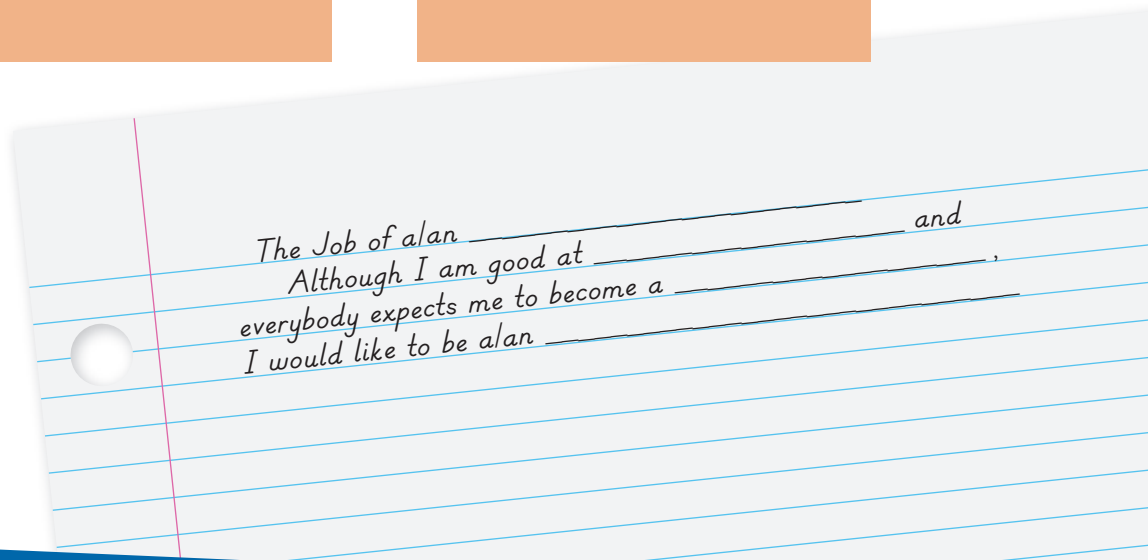 The Job of a/an ____________________
Although I am good at ____________________ and
everybody expects me to become a ____________________,
I would like to be a/an ____________________